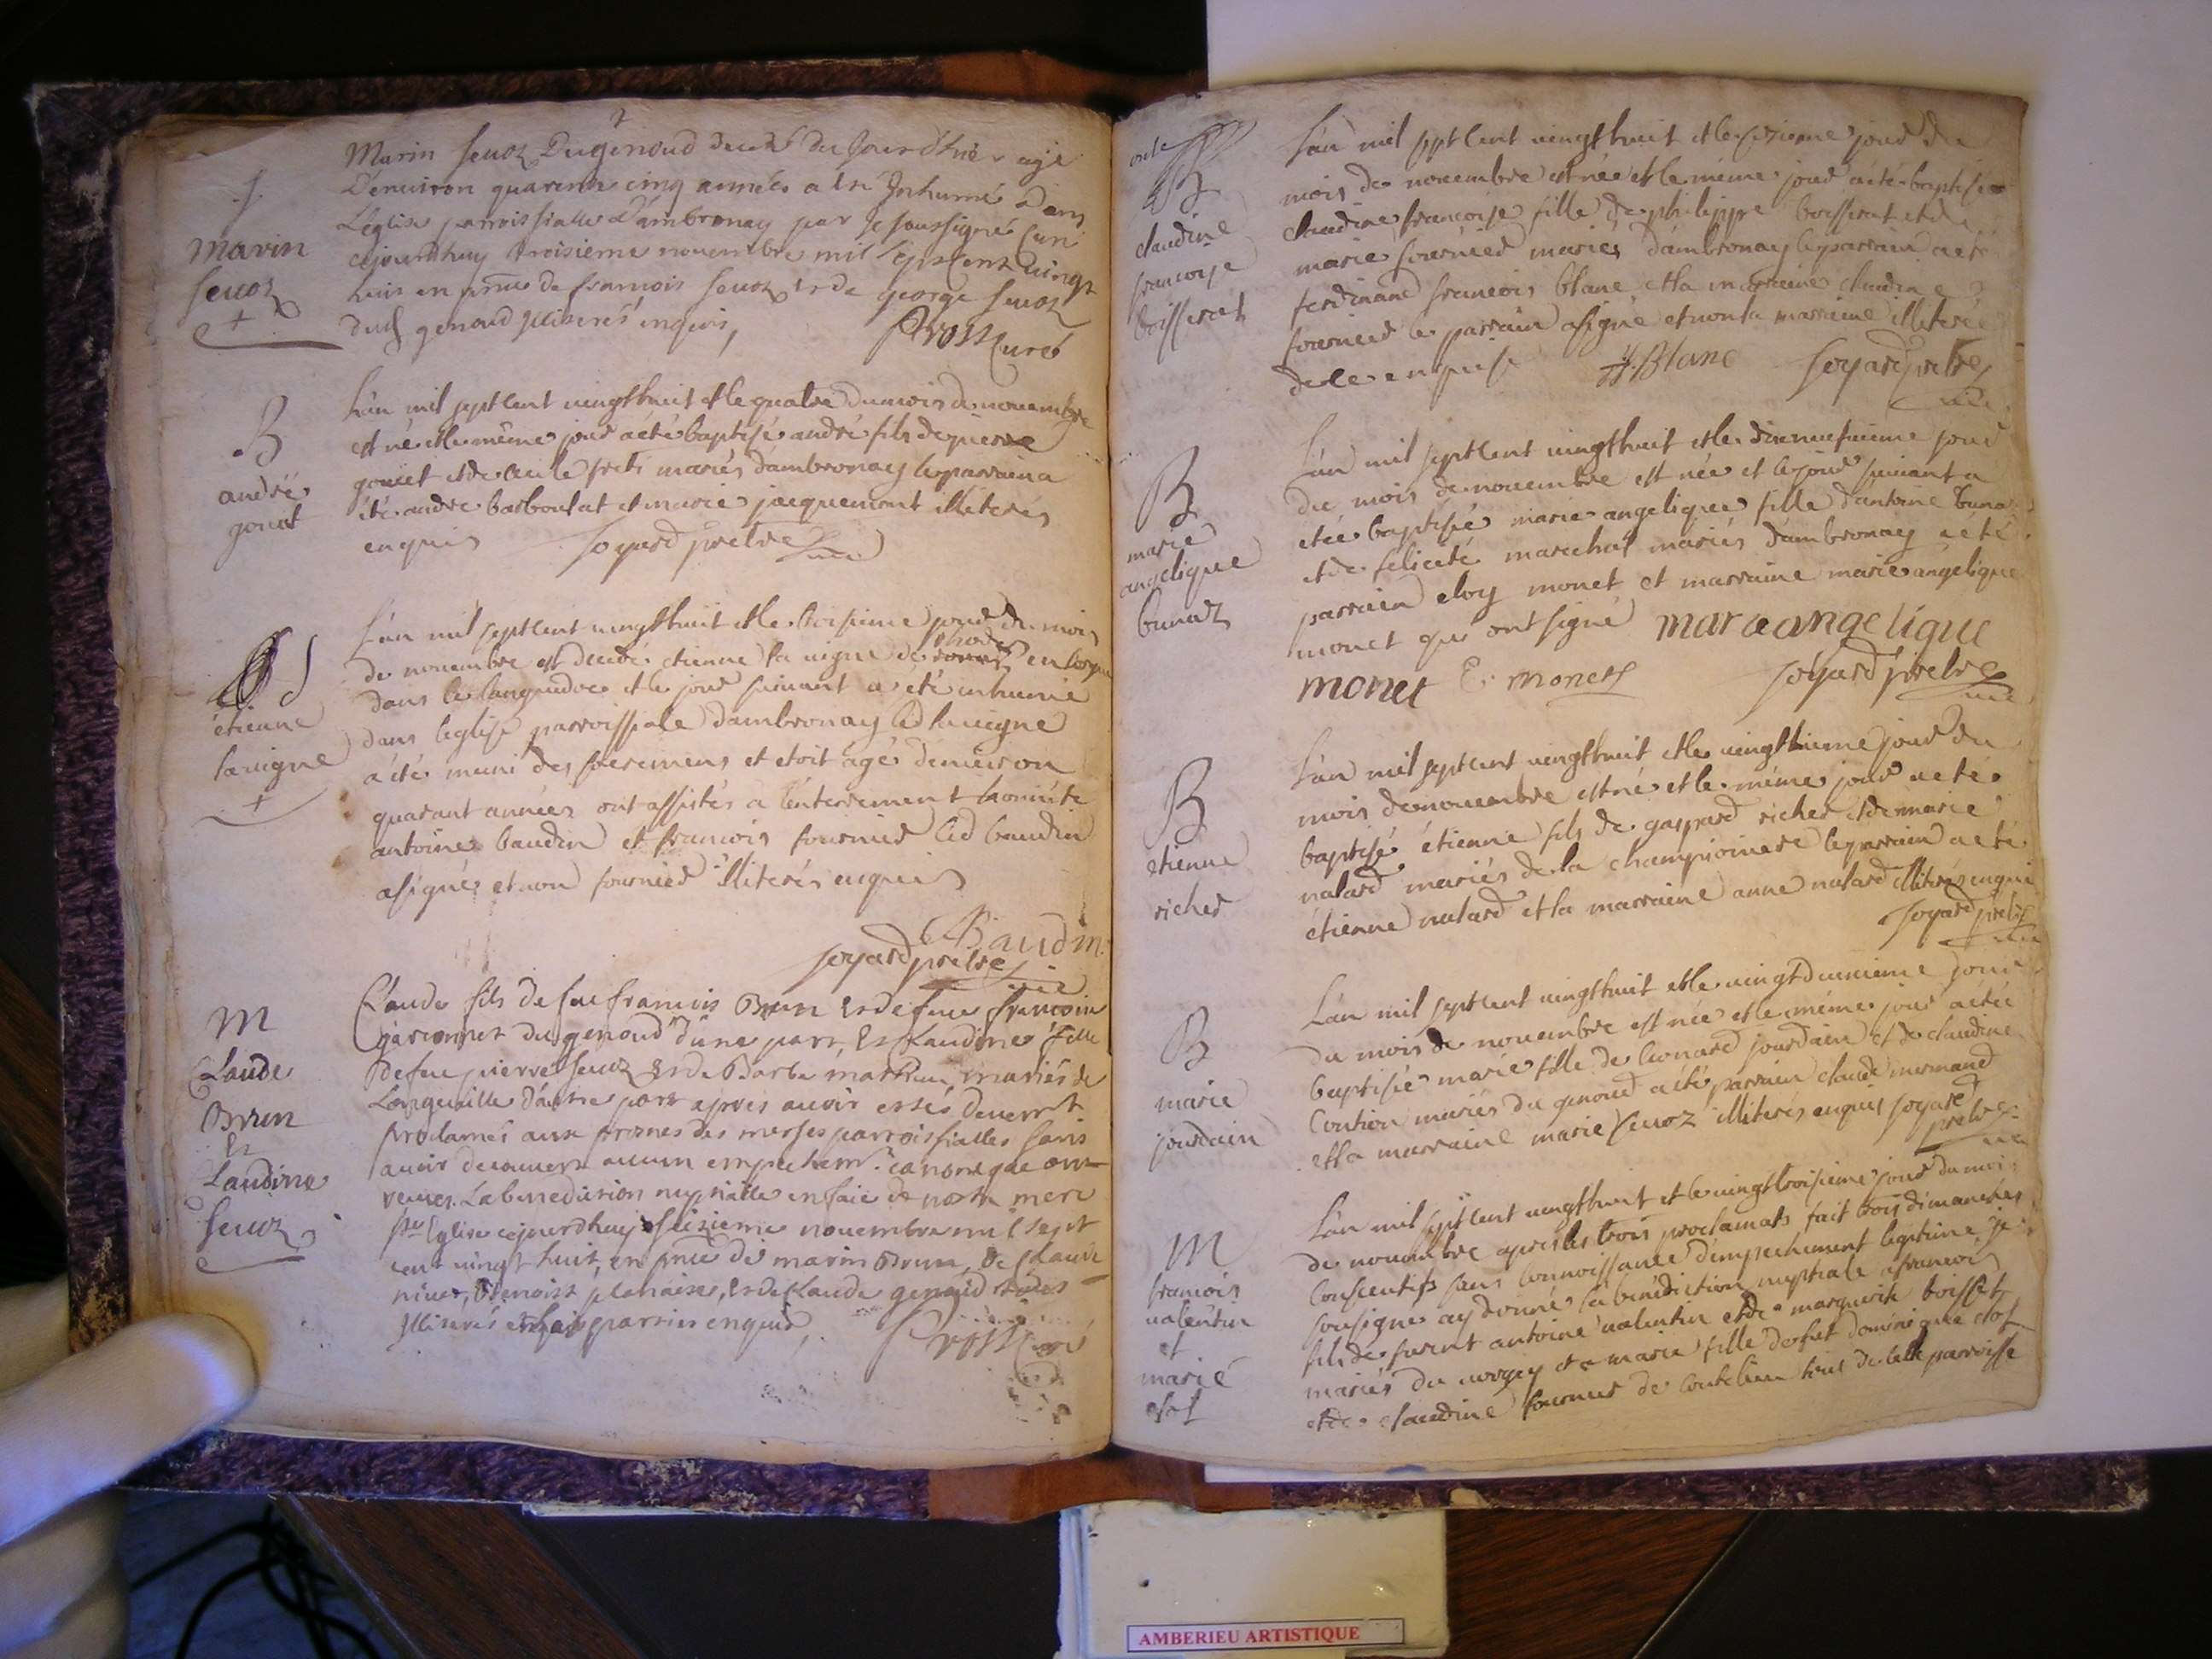 S
Marin
Seuoz
+
Marin Seuoz Dugenoud decedé du Jour d'hier agé
D'enuiron quarente cinq années a été Inhumé dans
L'église parroissialle D'ambronay par Je soussigné Curé
cejourdhuy troisieme nouembre mil sept cent vingt
huit en pnce de francois Seuoz et de george Seuoz
dud genoud Illiterés enquis,
Cross Curé
B
andré
gouet
L'an mil sept cent vingt huit et le quatre du mois de nouembre
est né et le même jour a été baptisé andré fils de pierre
gouet et de mariés d'ambronay le parrain a
été andre barboulat et marie jacquemont illiterés
enquis Soyard prêtre
S
étienne
lavigne
+
L'an mil sept cent vingt huit et le jour du mois
de nouembre est decedé etienne la vigne de
dans le languedoc et le jour suiuant a été inhumé
dans leglise parroissiale dambronay led lauigne
a été muni des sacremens et etoit agé denuiron
quarant années ont assistés a l'enterrement honnete
antoine baudin et francois fournier led baudin
a signé et non fournier illiterés enquis
Baudin
Soyard prêtre
M
Claude
Brun
Et
Claudine
Seuoz
Claude fils de feu francois Brun et de feue francoise
du genoud d'une part, Et Claudine fille
de feu pierre Seuoz et de Barbe mariés de
Longuaille d'autre part apres auoir estés deuement
proclamés aux prones des messes parroissialles sans
auoir decouuert aucun empechemt canonique ont
receu La benediction nuptialle en face de notre mere
Ste Eglise cejourdhuy seizieme nouembre mil sept
cent vingt huit, en pnce de marin Brun, de Claude
niuer, Benoist planaise, et de Claude genoud tous
Illiterés enquis,
Cross Curé
B
claudine
francoise
boisserat
L'an mil sept cent vingt huit et le jour du
mois de nouembre est née et le même jour a été baptisée
claudine francoise fille de philippe boisserat et de
marie fournier mariés d'ambronay le parrain a été
ferdinand francois blanc et la marraine claudine
fournier le parrain a signé et non la marraine illiterée
de ce enquise
f. f. Blanc Soyard prêtre
B
marie
angelique
bunoz
L'an mil sept cent vingt huit et le dixneufuieme jour
du mois de nouembre est née et le jour suiuant a
etée baptisée marie angelique fille dantoine bunoz
et de felicité marechal mariés d'ambronay a été
parrain eloy monet et marraine marie angelique
monet qui ont signé maraangelique
monet E. monet Soyard prêtre
B
etienne
richer
L'an mil sept cent vingt huit et le vingthieme jour du
mois de nouembre est né et le même jour a eté
baptisé étienne fils de gaspard richer et de marie
nalard mariés de la championiere le parrain a eté
étienne nalard et la marraine anne nalard illiterés enquis
Soyard prêtre
B
marie
jourdain
L'an mil sept cent vingt huit et le vingt deuxieme jour
du mois de nouembre est née et le même jour a étée
baptisée marie fille de leonard jourdain et de claudine
Coution mariés du genoud a été parrain claude mermand
et la marraine marie Seuoz illiterés enquis Soyard
prêtre
M
francois
ualentin
et
marie
clos
L'an mil sept cent vingt huit et le vingt troisieme jour du mois
de nouembre apres les trois proclamats fait trois dimanches
consecutifs sans connoissance d'empechement legitime je
sousigne ay donné la bénédiction nuptiale a francois
fils de furent antoine ualentin et de marguerite boisset
mariés du et a marie fille de fut dominique clos
et de claudine fournier de tous de cette parroisse
AMBERIEU ARTISTIQUE